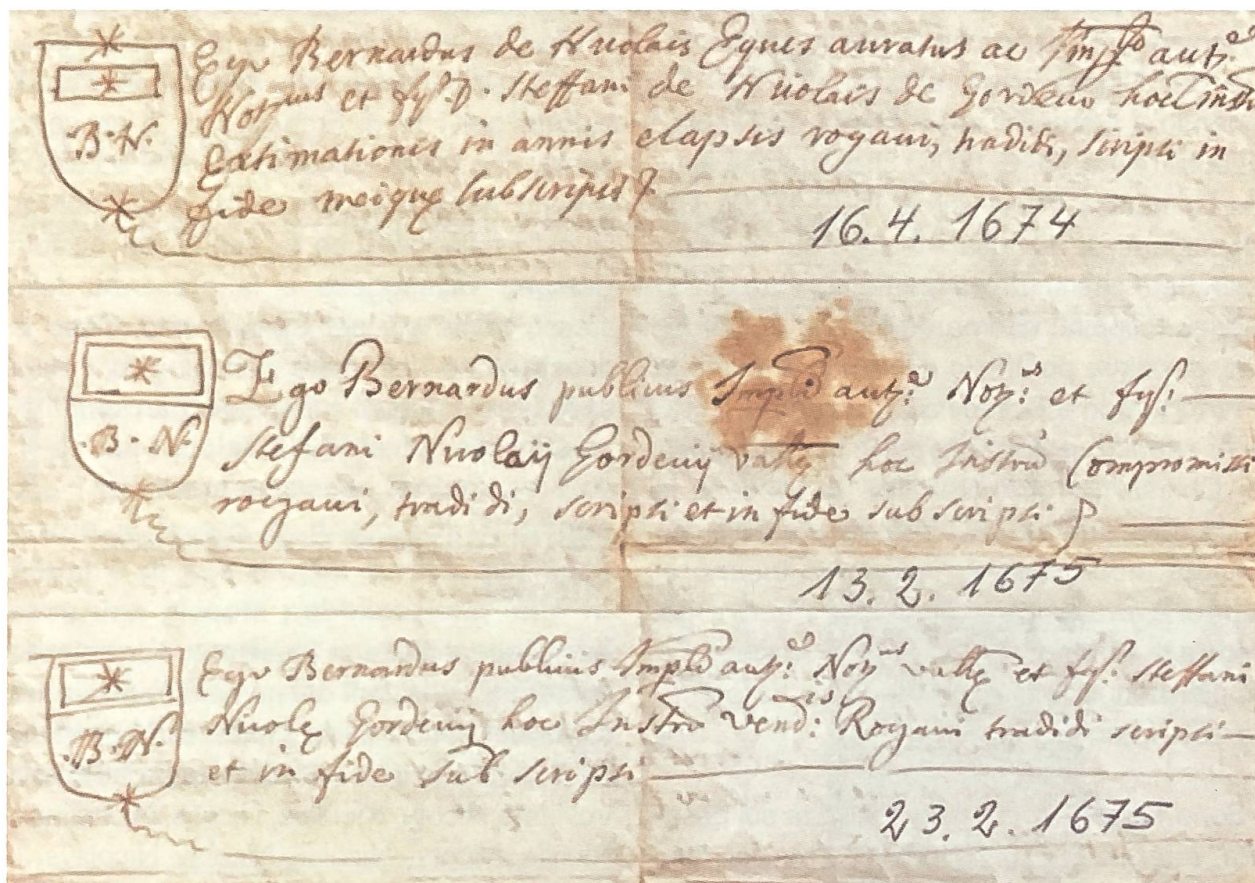 Ego Bernardus de Nuolais Eques auratus ac Imp. aut:
B. N.
Not.us et D. Steffani de Nuolais de Gordeuio hoc Inst
Extimationis in annis elapsis rogaui, tradidi, scripsi in
fide meiq subscripsi
16.4. 1674
Ego Bernardus publicus Impli aut: Not: et
.B. N.
Stefani Nuolaij Gordeuij hoc Instru Compromissi
rogaui, tradidi, scripsi et in fide subscripsi
13. 2. 1675
Ego Bernardus publicus Impli aut: et Steffani
.B. N.
Nuolę Gordeuij hoc Instru vend: Rogaui tradidi scripsi
et in fide sub scripsi
23. 2. 1675